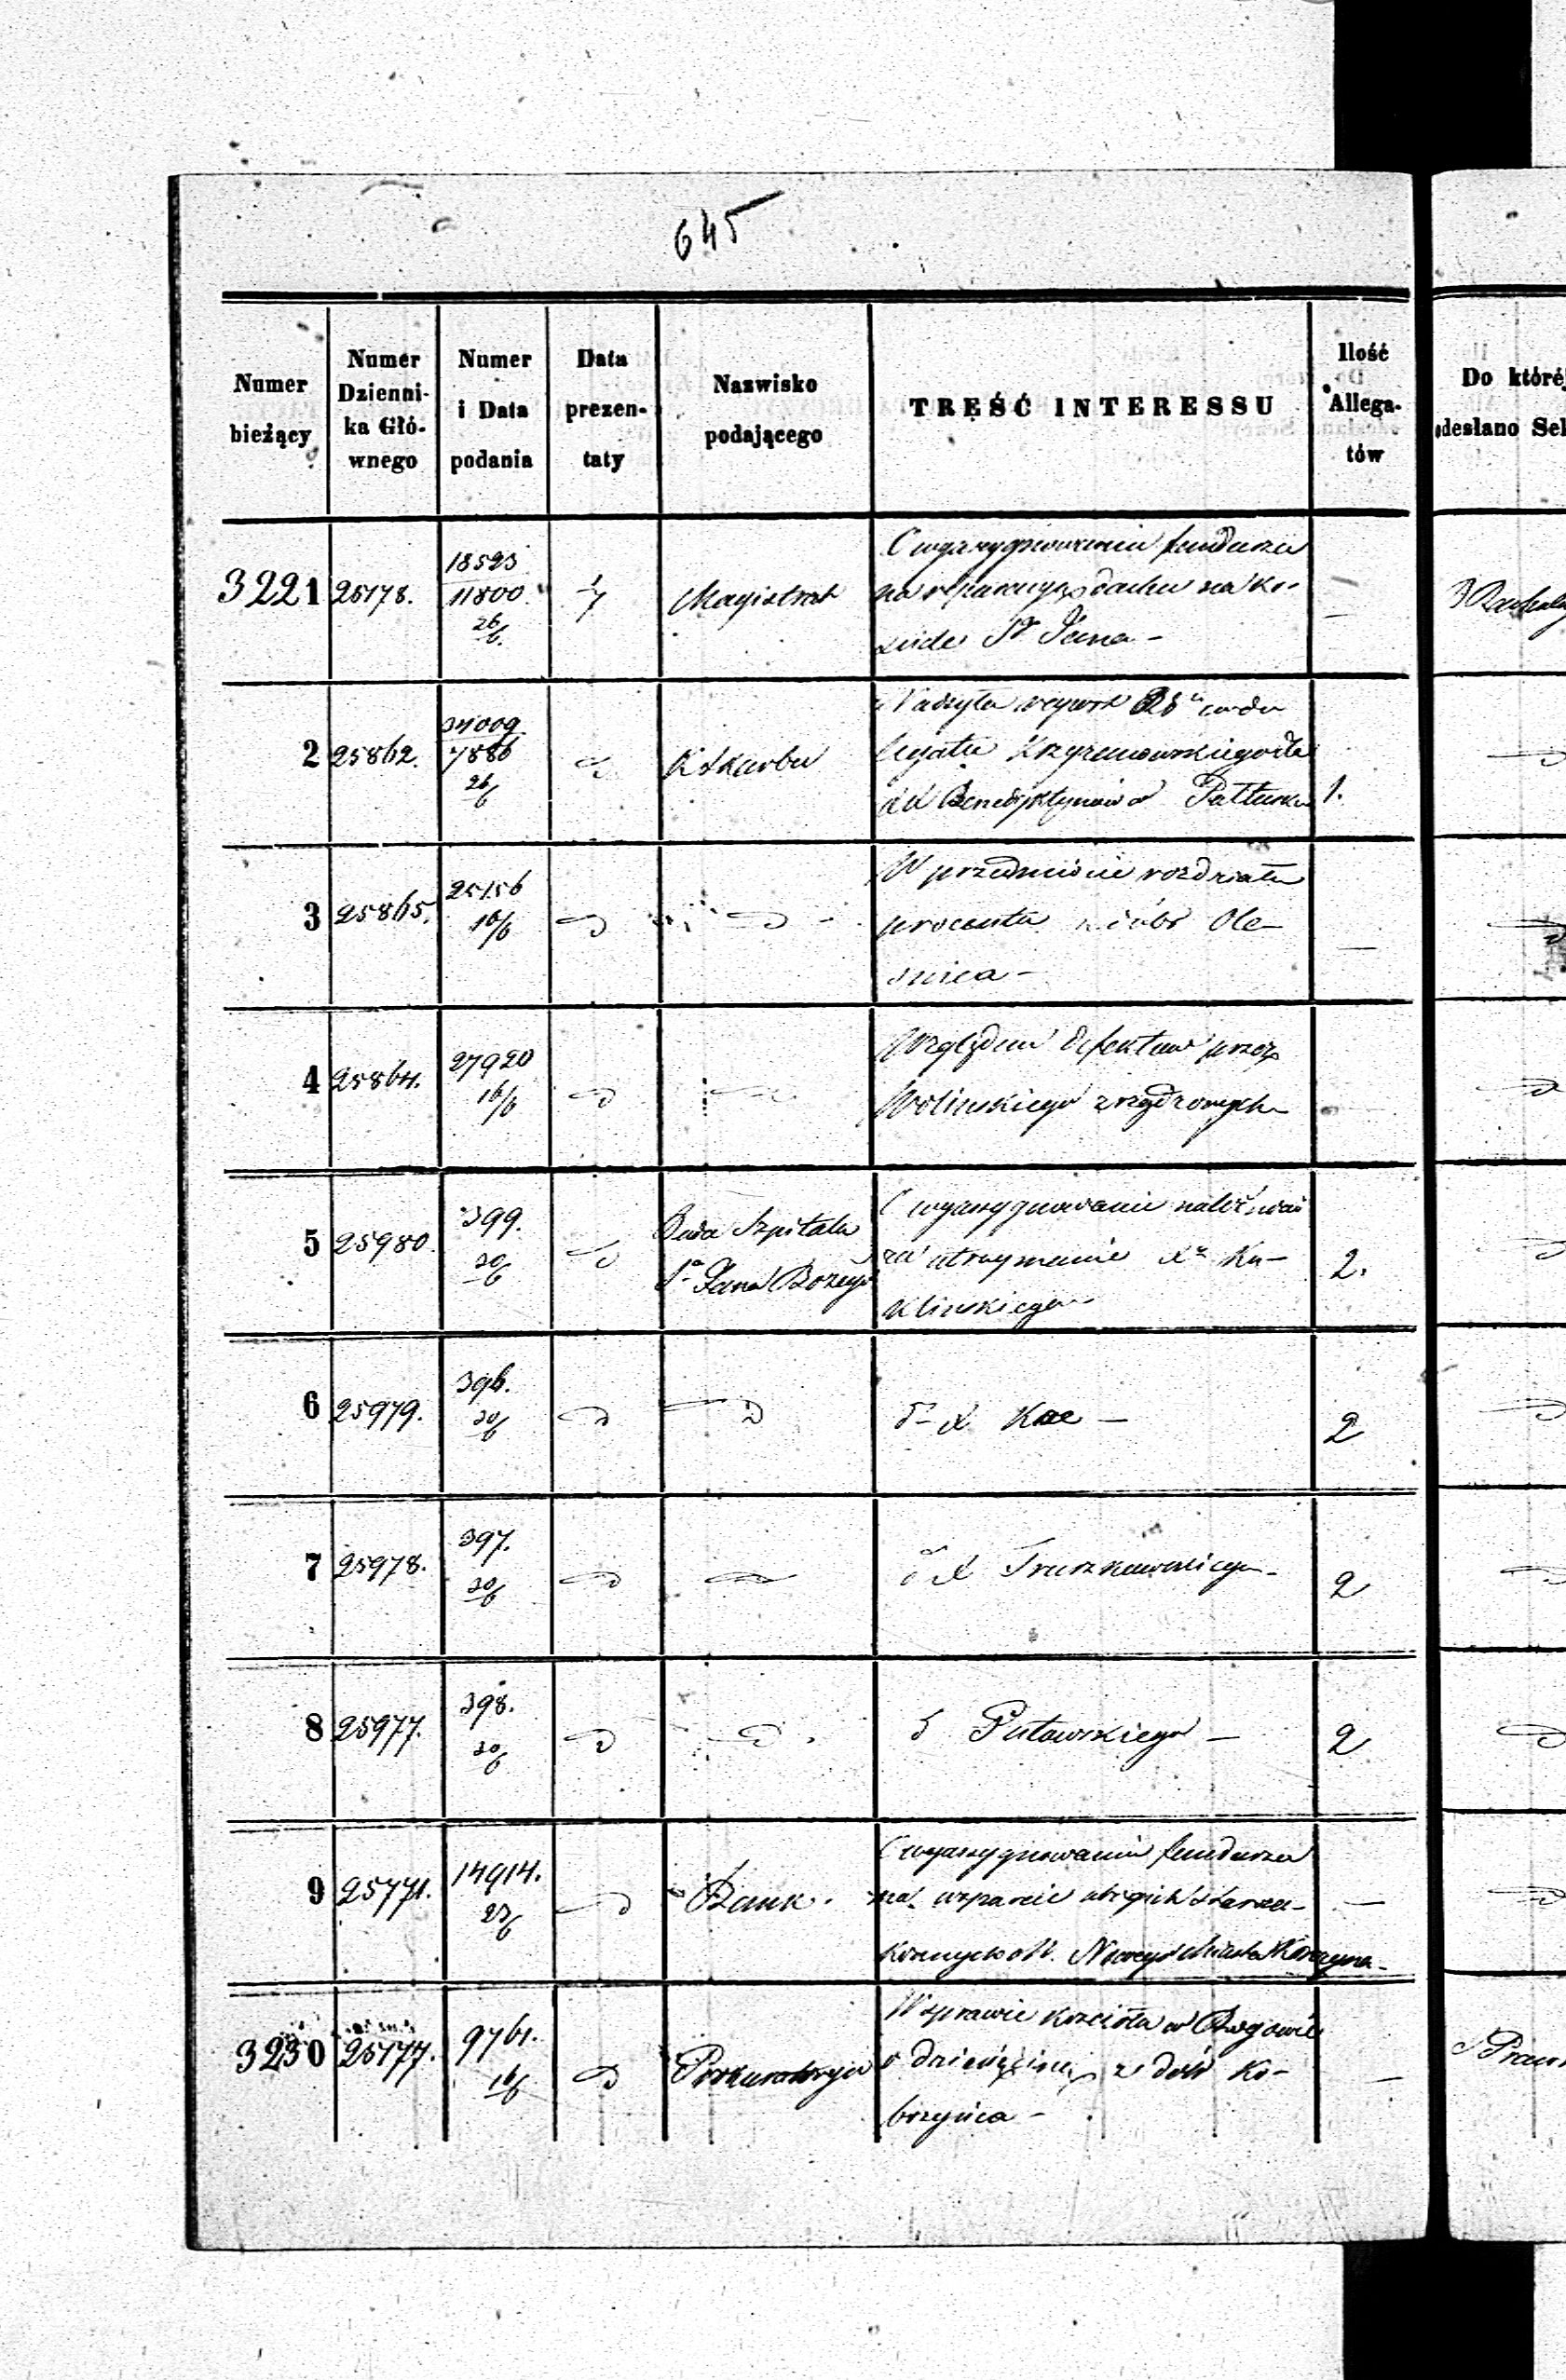 645
Numer bieżący
Numer Dzienni- ka Głó- wnego
Numer i Data podania
Data prezen- taty
Nazwisko podającego
TREŚĆ INTERESSU
Ilość Allega- tów
Do któréj
desłano Sek
3221 25178. 18523 11800 26/6. 1/7 Magistrat
O wyasygnowanie funduszu
na reparacyą dachu na Ko-
ściele Sgo Jana –
2 25862. 7886 26/6 K Skarbu 1.
legatu
XX Benedyktynów w Pułtusku
3 25865. 25156 16/6
W przedmiocie rozdziału
procentu z dóbr Ole-
śnica –
4 25864. 27920 16/6
Względem defektów przez
Wolińskiego zrządzonych
5 25980. 399. 30/6 Rada Szpitala
Sgo Jana Bożego 2.
O wyasygnowanie należności
za utrzymanie Xa Ku-
klińskiego
6 25979. 396. 30/6 do X 2
7 25978. 397. 30/6 do X Truszkowskiego – 2
8 25977. 398. 30/6 Puławskiego – 2
9 25771. 14914. 23/6 Bank. –
O wyasygnowanie funduszu
na wsparcie ubogich staroza-
konnych Nowego Miasta Korczyna –
3230 25177. 9761. 16/6 Prokuratorya –
W sprawie kościoła w Rogowie
o dziesięcinę z dóbr Ko-
brzyńca –